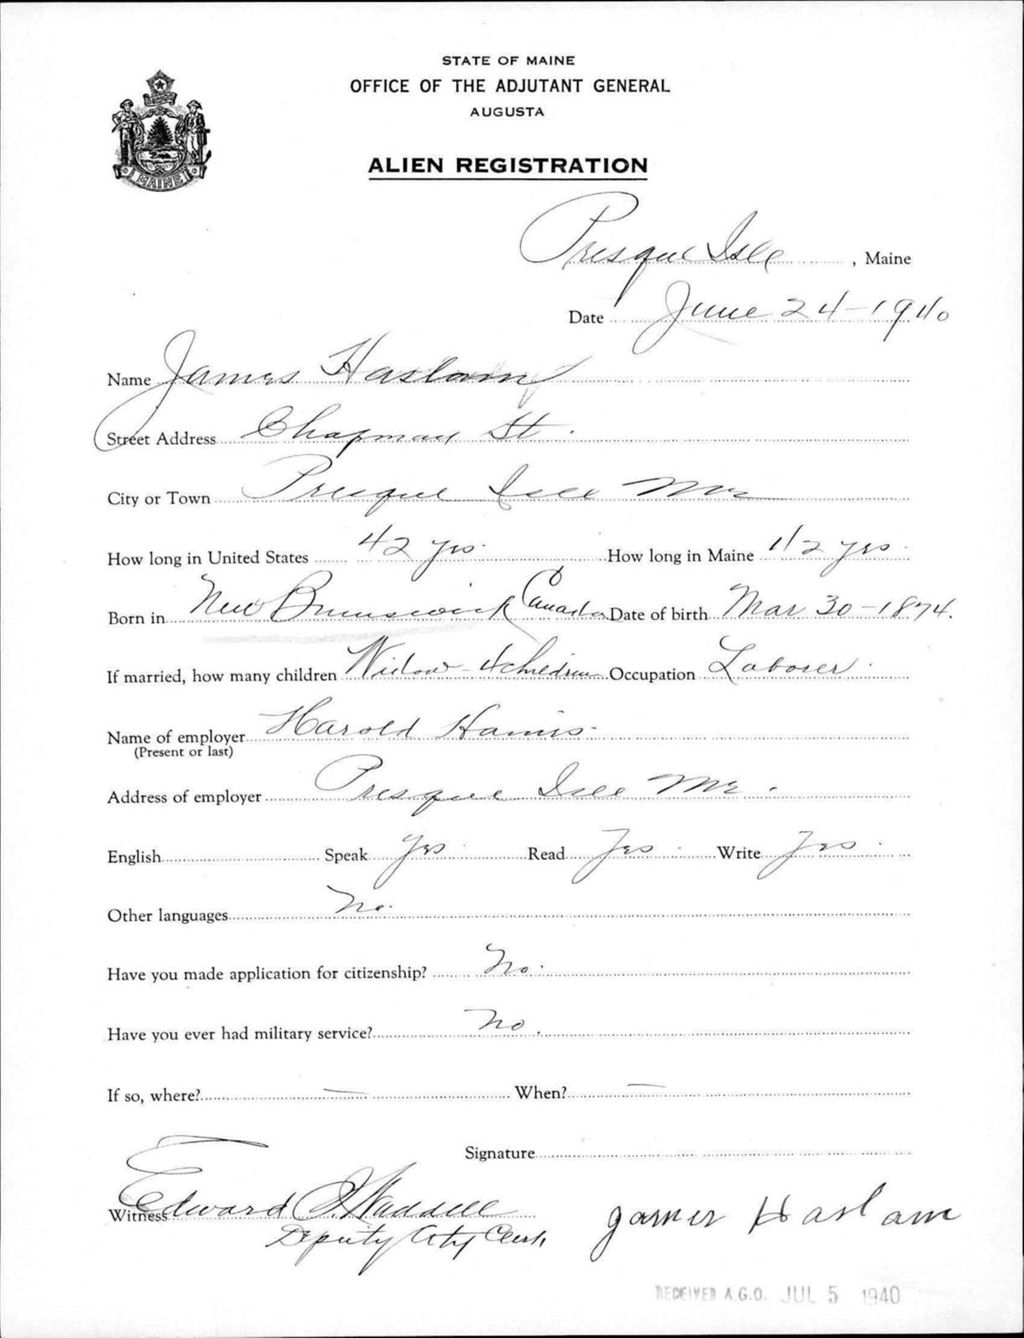 STATE OF MAINE
OFFICE OF THE ADJUTANT GENERAL
AUGUSTA
ALIEN REGISTRATION
MAINE
Presque Isle, Maine
Date June 24-1940
Name James Haslam
Street Address Chapman St.
City or Town Presque Isle Me
How long in United States 42 yrs. How long in Maine 42 yrs.
Born in New Brunswick Canada Date of birth Mar 30-1874.
If married, how many children Widow-4 children Occupation Laborer.
Name of employer Harold
(Present or last)
Address of employer Presque Isle Me.
English Speak Yes Read Yes Write Yes
Other languages No.
Have you made application for citizenship? No.
Have you ever had military service? No.
If so, where? — When? —
Signature
Witness Edward J. Waddell James Haslam
Deputy City Clerk
RECEIVED A.G.O. JUL 5 1940